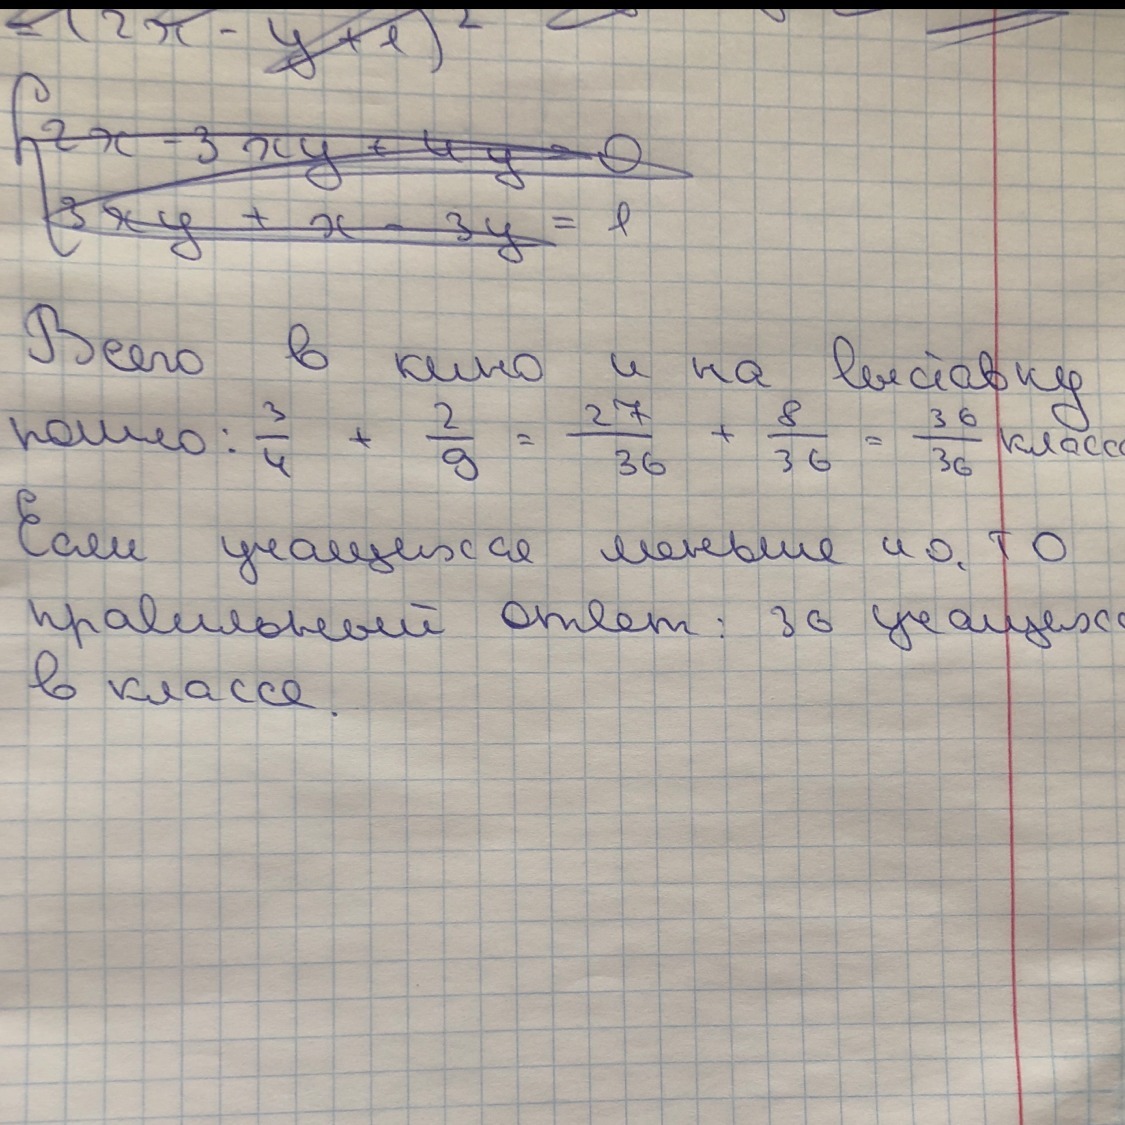 = (2x - y + 1)²
2x - 3xy + 4y = 0
3xy + x - 3y = 1
Всего в кино и на выставку
пошло: 3/4 + 2/9 = 27/36 + 8/36 = 36/36 класса
Если учащихся меньше 40, то
правильный ответ: 36 учащихся
в классе.